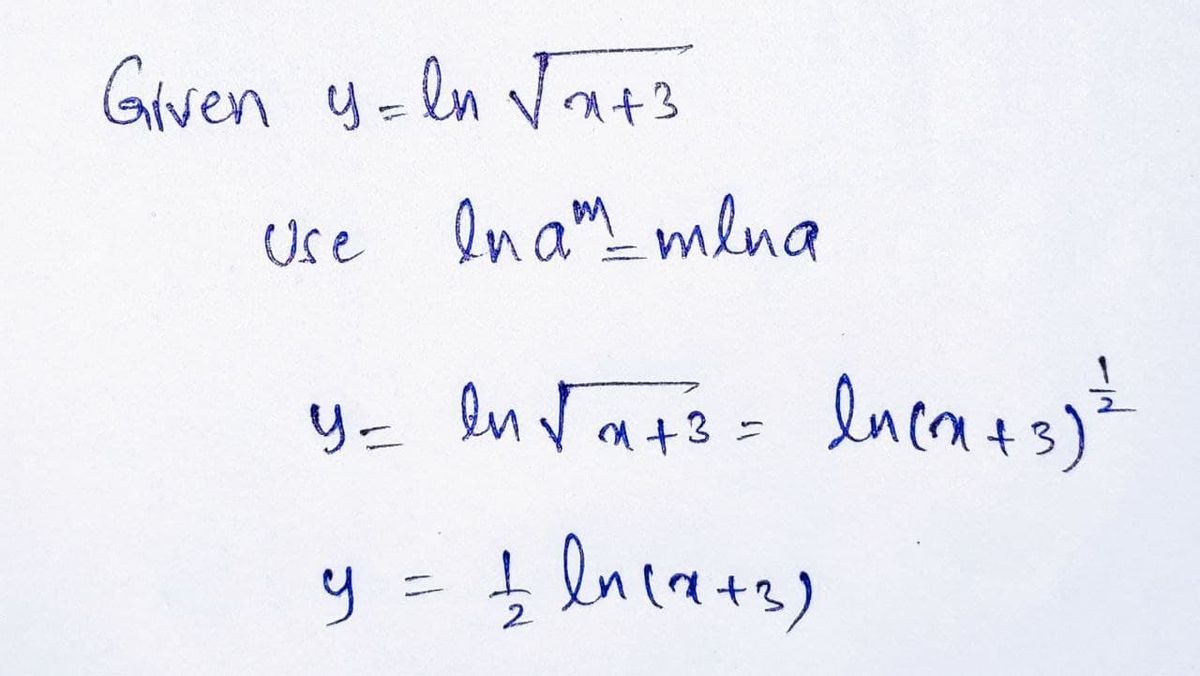 Given y = ln √(x+3)
Use ln aᵐ = m ln a
y = ln √(x+3) = ln(x+3)^(1/2)
y = 1/2 ln(x+3)